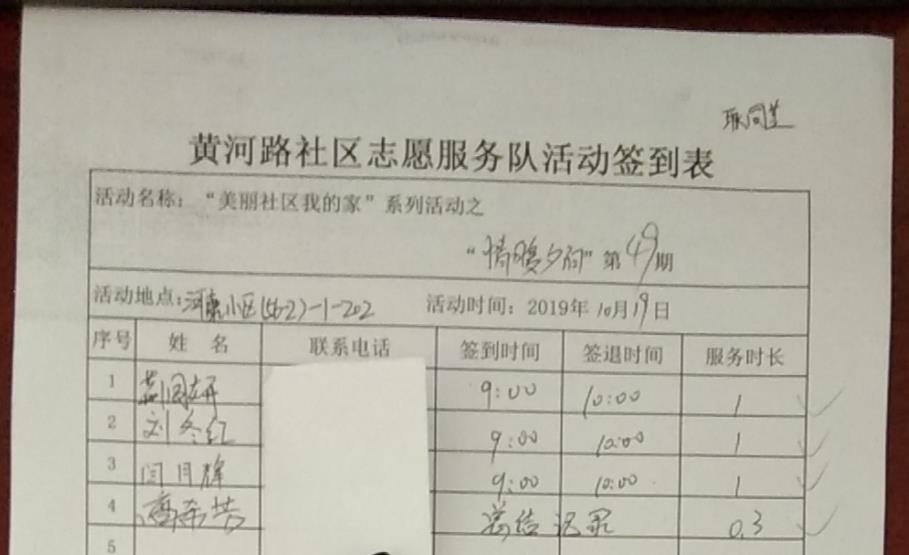 黄河路社区志愿服务队活动签到表
活动名称：“美丽社区我的家”系列活动之
“情暖夕阳”第49期
活动地点：河康小区(56-2)-1-202 活动时间：2019年10月19日
序号 姓名 联系电话 签到时间 签退时间 服务时长
1 9:00 10:00 1
2 刘冬红 9:00 10:00 1
3 闫月辉 9:00 10:00 1
4 总结记录 0.3
5